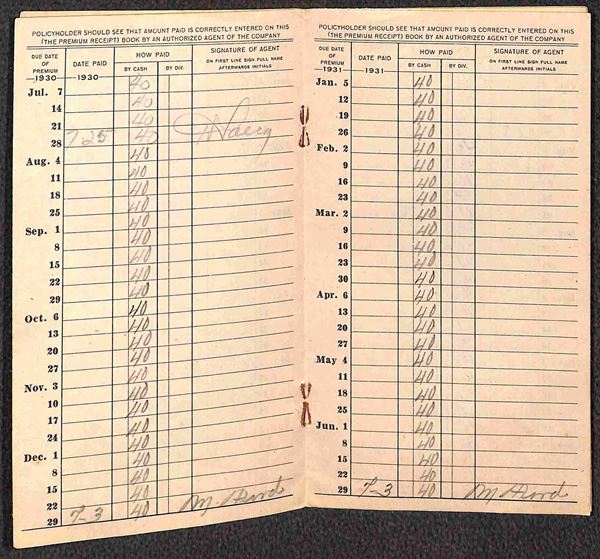 POLICYHOLDER SHOULD SEE THAT AMOUNT PAID IS CORRECTLY ENTERED ON THIS
(THE PREMIUM RECEIPT) BOOK BY AN AUTHORIZED AGENT OF THE COMPANY
DUE DATE OF PREMIUM 1930 DATE PAID 1930 HOW PAID SIGNATURE OF AGENT
BY CASH BY DIV. ON FIRST LINE SIGN FULL NAME AFTERWARDS INITIALS
Jul. 7 40
14 40
21 40
28 7-25 40
Aug. 4 40
11 40
18 40
25 40
Sep. 1 40
8 40
15 40
22 40
29 40
Oct. 6 40
13 40
20 40
27 40
Nov. 3 40
10 40
17 40
24 40
Dec. 1 40
8 40
15 40
22 40
29 7-3 40
POLICYHOLDER SHOULD SEE THAT AMOUNT PAID IS CORRECTLY ENTERED ON THIS
(THE PREMIUM RECEIPT) BOOK BY AN AUTHORIZED AGENT OF THE COMPANY
DUE DATE OF PREMIUM 1931 DATE PAID 1931 HOW PAID SIGNATURE OF AGENT
BY CASH BY DIV. ON FIRST LINE SIGN FULL NAME AFTERWARDS INITIALS
Jan. 5 40
12 40
19 40
26 40
Feb. 2 40
9 40
16 40
23 40
Mar. 2 40
9 40
16 40
23 40
30 40
Apr. 6 40
13 40
20 40
27 40
May 4 40
11 40
18 40
25 40
Jun. 1 40
8 40
15 40
22 40
29 7-3 40